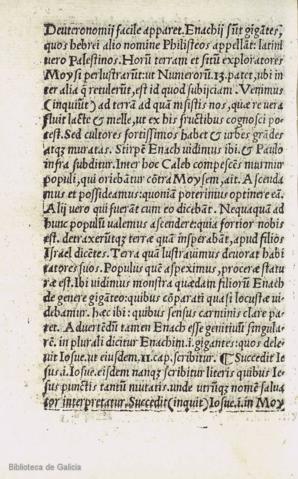 Deuteronomij facile apparet. Enachij sūt gigātes,
quos hebrei alio nomine Philisteos appellāt: latini
uero Palestinos. Horū terram et sitū exploratores
Moysi perlustrarūt: ut Numerorū .13. patet, ubi in
ter alia q̄ retulerūt, est id quod subijciam. Venimus
(inquiūt) ad terrā ad quā misistis nos, quæ re uera
fluit lacte & melle, ut ex his fructibus cognosci po
test. Sed cultores fortissimos habet & urbes grādes
atq; muratas. Stirpē Enach uidimus ibi. & Paulo
infra subditur. Inter hoc Caleb compescēs murmur
populi, qui oriebātur cōtra Moysem, ait. Ascenda
mus et possideamus: quoniā poterimus optinere eā.
Alij uero qui fuerāt cum eo dicebāt. Nequaquā ad
hunc populū ualemus ascendere: quia fortior nobis
est. detraxerūtq; terræ quā inspexerāt, apud filios
Israel dicētes. Terra quā lustrauimus deuorat habi
tatores suos. Populus quē aspeximus, proceræ statu
ræ est. Ibi uidimus monstra quædam filiorū Enach
de genere gigāteo: quibus cōparati quasi locustæ ui
debamur. hæc ibi: quibus sensus carminis clare pa
tet. Aduertēdū tamen Enach esse genitiuū singula
rē. in plurali dicitur Enachim .i. gigantes: quos dele
uit Iosue. ut eiusdem .11. cap. scribitur. ¶ Succedit Ie
sus .i. Iosue. eisdem nanq; scribitur literis quibus Ie
sus punctis tantū mutatis. unde utrūq; nomē salua
tor interpretatur. Succedit (inquit) Iosue .i. in Moy
Biblioteca de Galicia